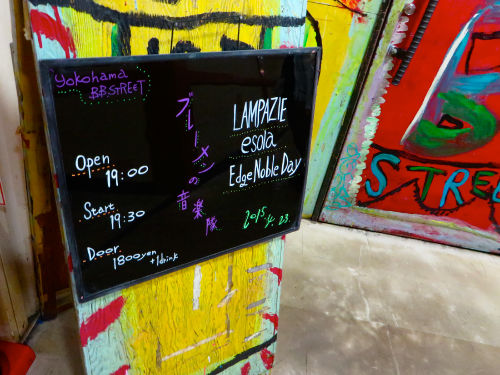 Yokohama
B.B.STREET
Open
19:00
Start
19:30
Door
1800yen
+1drink
ブレーメンの音楽隊
LAMPAZIE
esola
Edge Noble Day
2015.4.23.
STREE